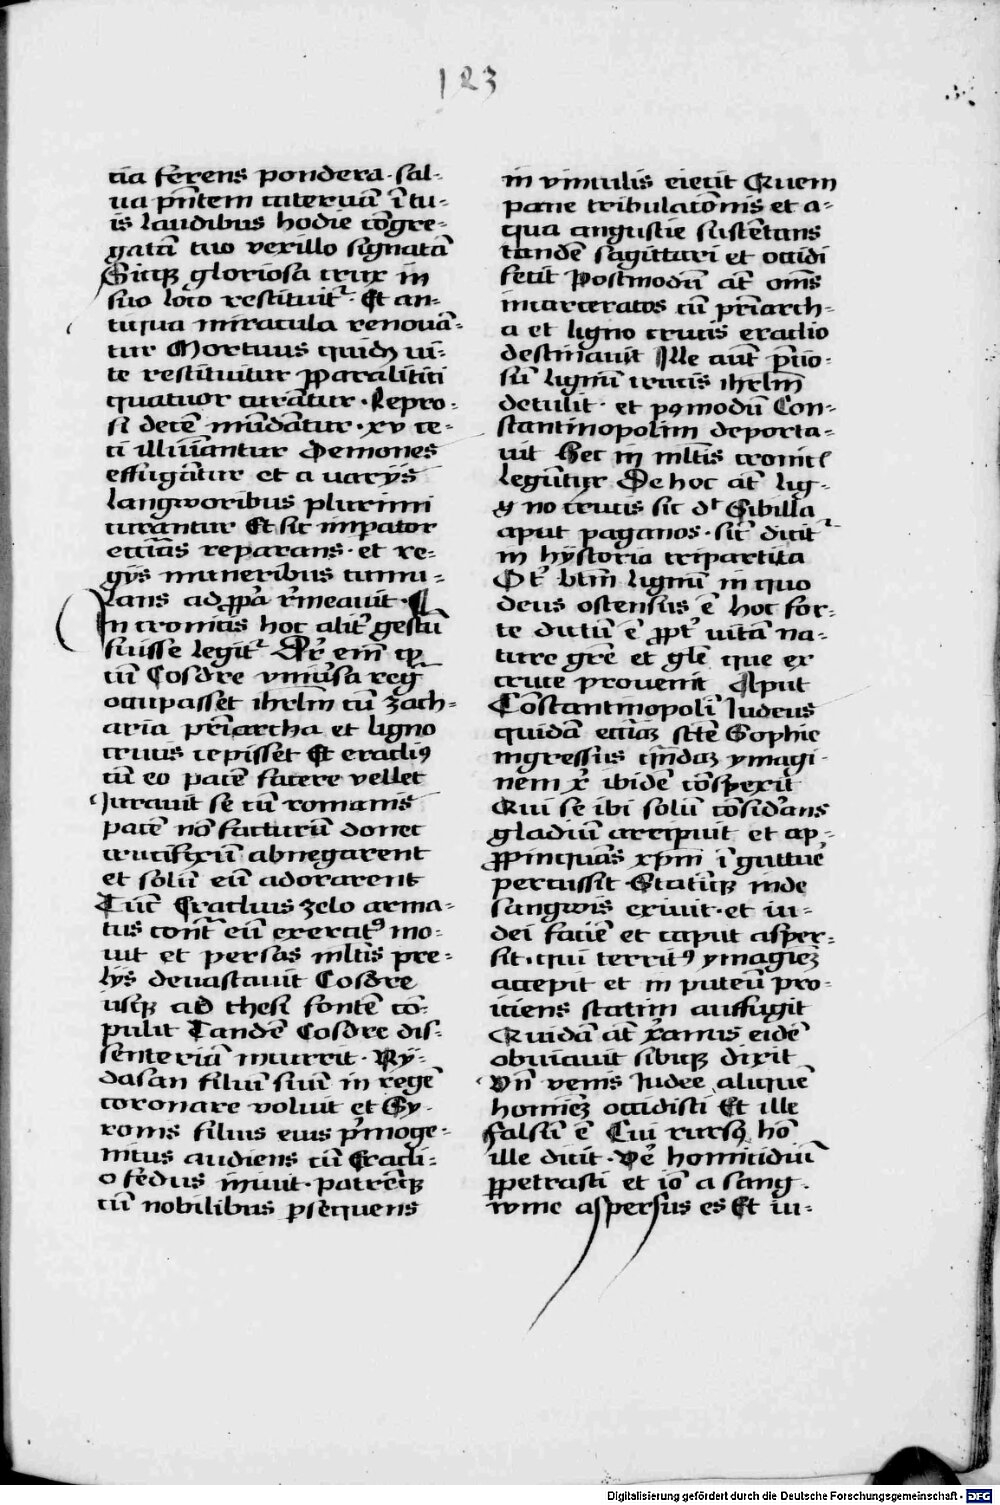 123
cia ferens pondera · sal-
ua pñtem cateruã ĩ tu-
is laudibus hodie cõgre-
gatã tuo vexillo signatã
Sicqꝫ gloriosa crux in
suo loco restituit᷑ · Et an-
tiqua miracula renouã-
tur Mortuus quidẽ vi-
te restituitur Paralitici
quatuor curãtur · Lepro-
si decẽ mũdãtur · xv ce-
ci illuĩantur Demones
effugãtur et a varijs
langworibus plurimi
curantur Et sic imꝑator
ecc̃ias reparans · et re-
gijs muneribus cumu-
lans ad ꝓpͥa r̃meauit · ¶
In cronicis hoc alit᷑ gestũ
fuisse legit᷑ Dr̃ em̃ ꝙ
cũ Cosdre vniũsa reg
ocupasset ihrlm̃ cũ zach-
aria pr̃iarcha et ligno
crucis cepisset Et eracliꝰ
cũ eo pacẽ facere vellet
Jurauit se cũ romanis
pacẽ nõ facturũ donec
crucifixũ abnegarent
et solũ eũ adorarent
Tũc Eraclius zelo arma-
tus cont᷑ eũ exercitꝰ mo-
uit et persas ml̃tis pre-
lijs deuastauit Cosdre
usqꝫ ad thesi fontẽ cõ-
pulit Tandẽ Cosdre dis-
senteriã incurrit · Ky-
dasan filiũ suũ in regẽ
coronare voluit et Sy-
rois filius eius pͥmoge-
nitus audiens cũ Eracli-
o fedus iniuit · patrẽqꝫ
cũ nobilibus ꝑsequens
in vinculis eiecit Quem
pane tribulacõnis et a-
qua angustie sustẽtans
tandẽ sagittari et occidi
fecit Postmodũ aũt om̃s
incarceratos cũ pr̃iarch-
a et ligno crucis eraclio
destinauit Ille aũt p̃cio-
sũ lignũ crucis ihrlm̃
detulit · et pꝯmodũ Con-
stantinopolim deporta-
uit Hec in ml̃tis cronicͥ
legũtur De hoc aũt lig-
no crucis sic dͭ Sibilla
aput paganos · sic̃ dicit᷑
in hystoria tripartita
O tͬ btm̃ lignũ in quo
deus ostensus ẽ hoc for-
te dictũ ẽ ꝓpt᷑ vitã na-
ture gr̃e et gl̃e que ex
cruce prouenit Aput
Cõstantinopolĩ Judeus
quidã ecc̃iaꝫ sc̃te Sophie
ingressus qñdaꝫ ymagi-
nem xͥ ibidẽ cõspexit
Qui se ibi solũ cõsid̃ans
gladiũ arripuit et ap-
ꝓpinquãs xpm̃ ĩ gutture
percussit Statĩqꝫ inde
sangwis exiuit · et iu-
dei faciẽ et caput asper-
sit · qui territꝰ ymagiẽꝫ
accepit et in puteũ pro-
iciens statim auffugit
Quidã aũt xͥanus eidẽ
obuiauit sibiqꝫ dixit
Vñ venis Judee aliquẽ
homiẽꝫ occidisti Et ille
falsũ ẽ Cui rursꝯ hõ
ille dicit · Ve᷑ homicidiũ
ꝑpetrasti et iõ a sang-
wine aspersus es Et iu-
Digitalisierung gefördert durch die Deutsche Forschungsgemeinschaft - DFG